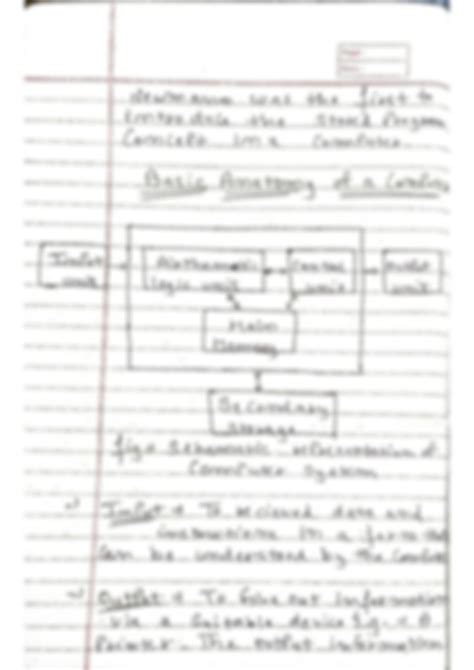 was the first to
the stored Program
in a computer.
Basic Anatomy of a
Input unit
Arithmetic logic unit
Control unit
Output unit
Main Memory
Secondary Storage
fig: Schematic representation of
Computer System
Input → To recieved data and
instructions in a form
can be understood by the
Output → To Give out information
via a Suitable device Eg. -
Printer. The output information